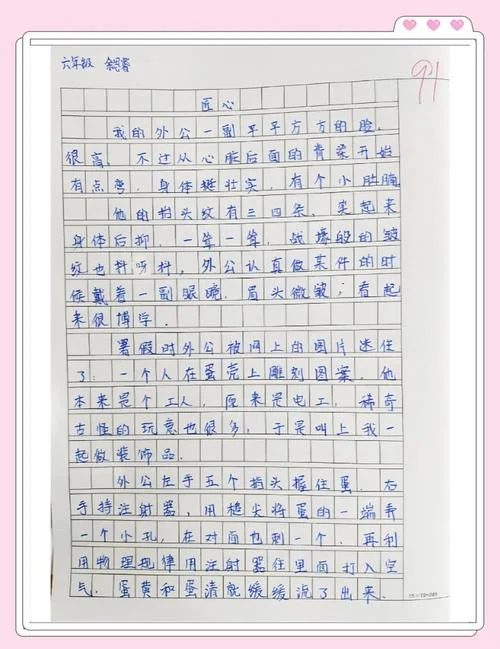 六年级
91
匠心
我的外公一副平平方方的脸,
很高。不过从心脏后面的背梁开始
有点弯,身体挺壮实,有个小肚腩
他的抬头纹有三四条,笑起来
身体后抑,一耸一耸,战壕般的皱
纹也抖呀抖,外公认真做某件的时
候戴着一副眼镜,眉头微皱;看起
来很博学。
暑假时外公被网上的图片迷住
了:一个人在蛋壳上雕刻图案。他
本来是个工人,原来是电工,稀奇
古怪的玩意也很多,于是叫上我一
起做装饰品。
外公左手五个指头握住蛋,右
手持注射器,用锤尖将蛋的一端弄
一个小孔,在对面也刺一个,再利
用物理规律用注射器往里面打入空
气,蛋黄和蛋清就缓缓流了出来。